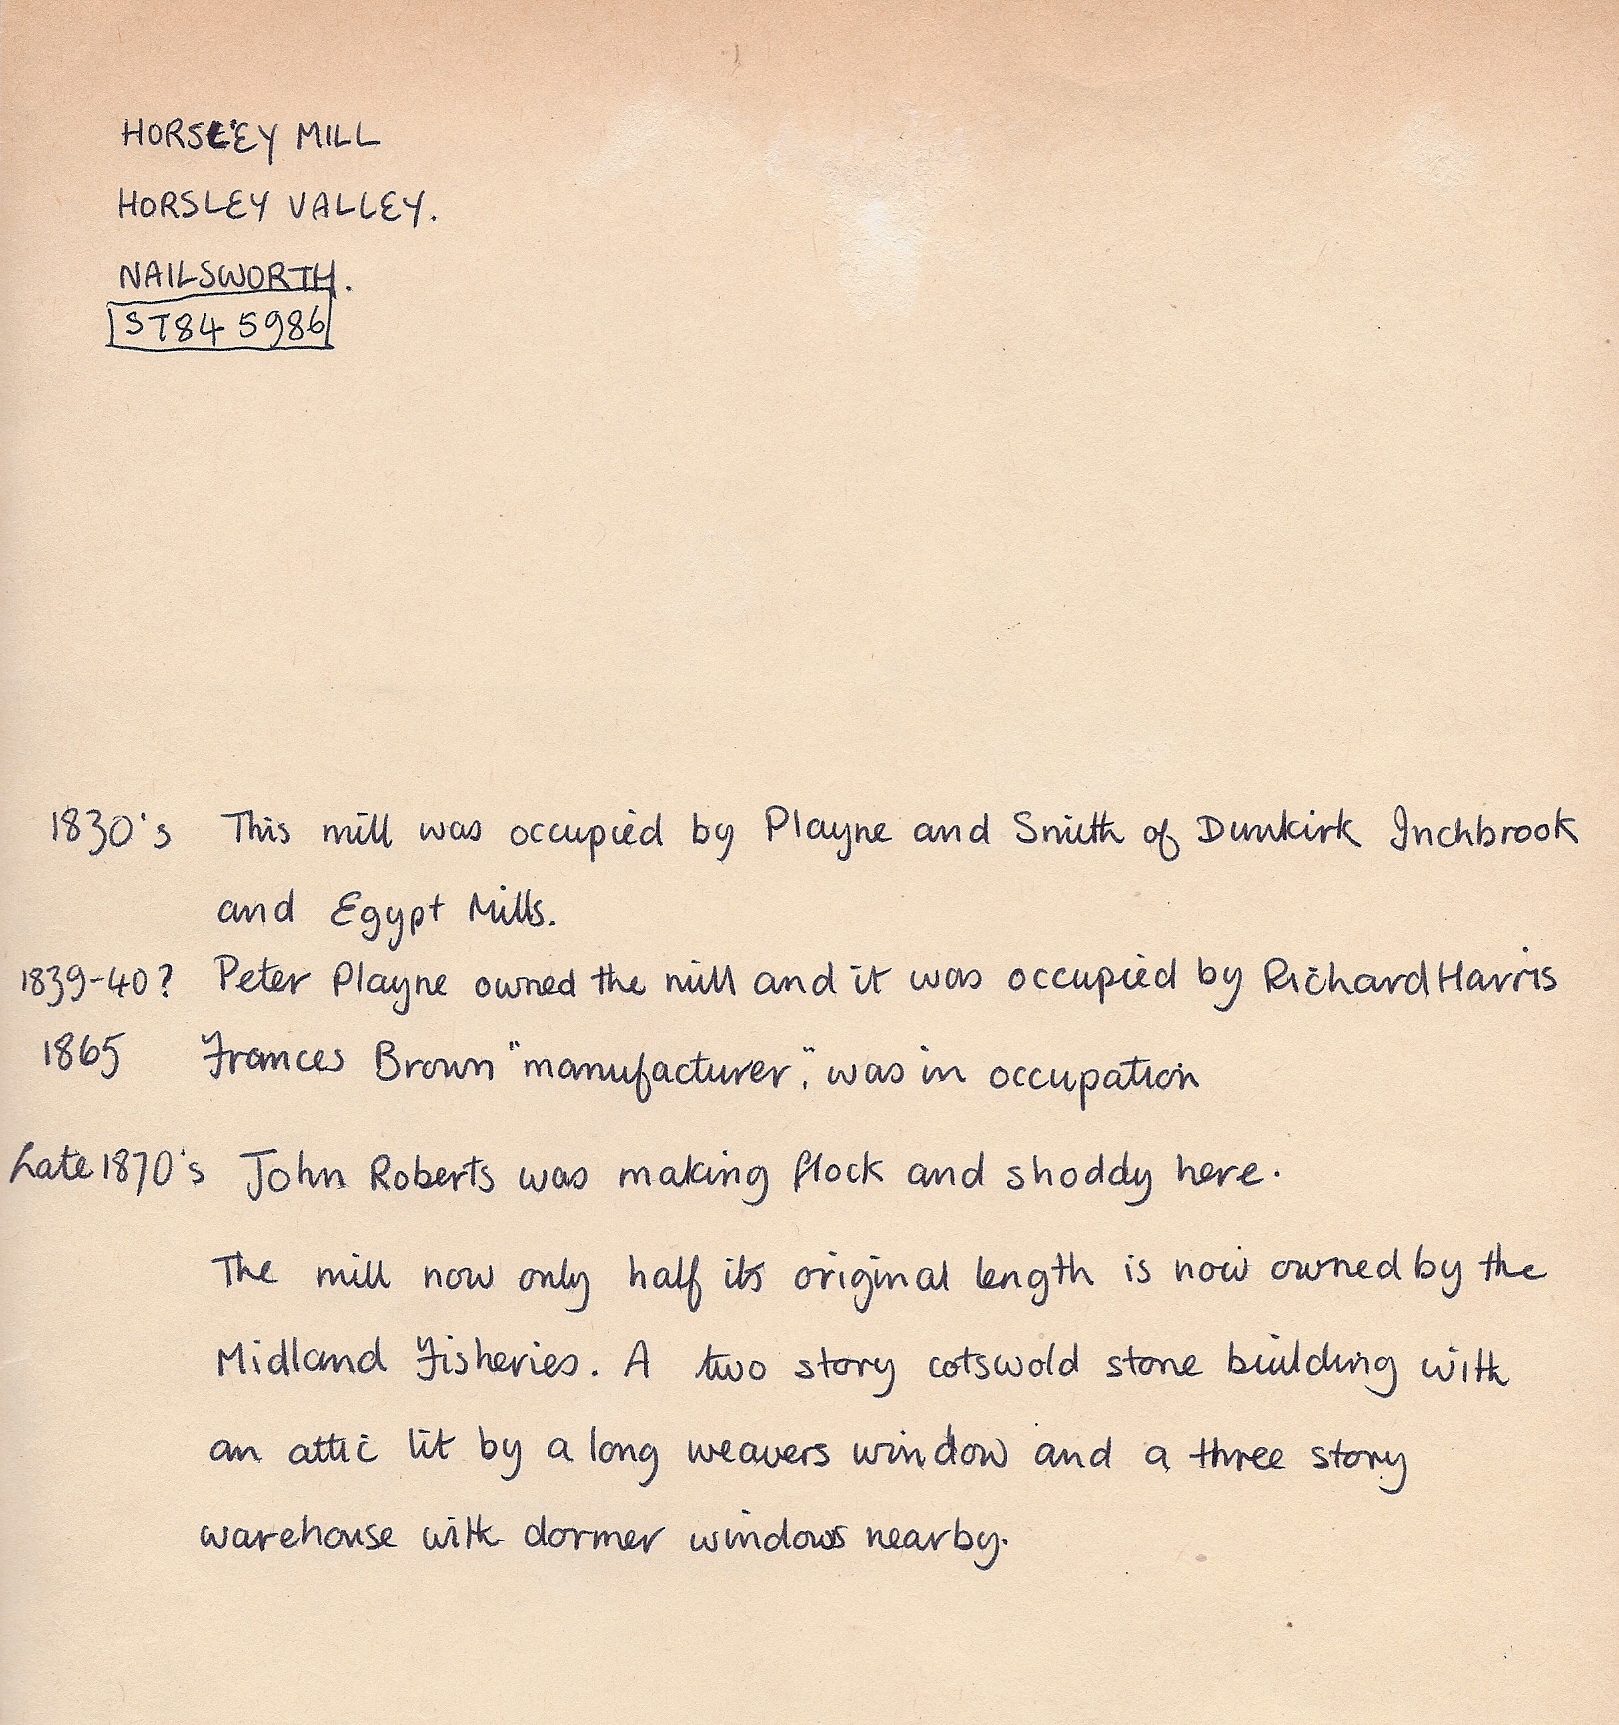 HORSLEY MILL
HORSLEY VALLEY.
NAILSWORTH.
ST84 5986
1830's This mill was occupied by Playne and Smith of Dunkirk Inchbrook
and Egypt Mills.
1839-40? Peter Playne owned the mill and it was occupied by Richard Harris
1865 Frances Brown "manufacturer", was in occupation
Late 1870's John Roberts was making flock and shoddy here.
The mill now only half its original length is now owned by the
Midland Fisheries. A two story cotswold stone building with
an attic lit by a long weavers window and a three story
warehouse with dormer windows nearby.